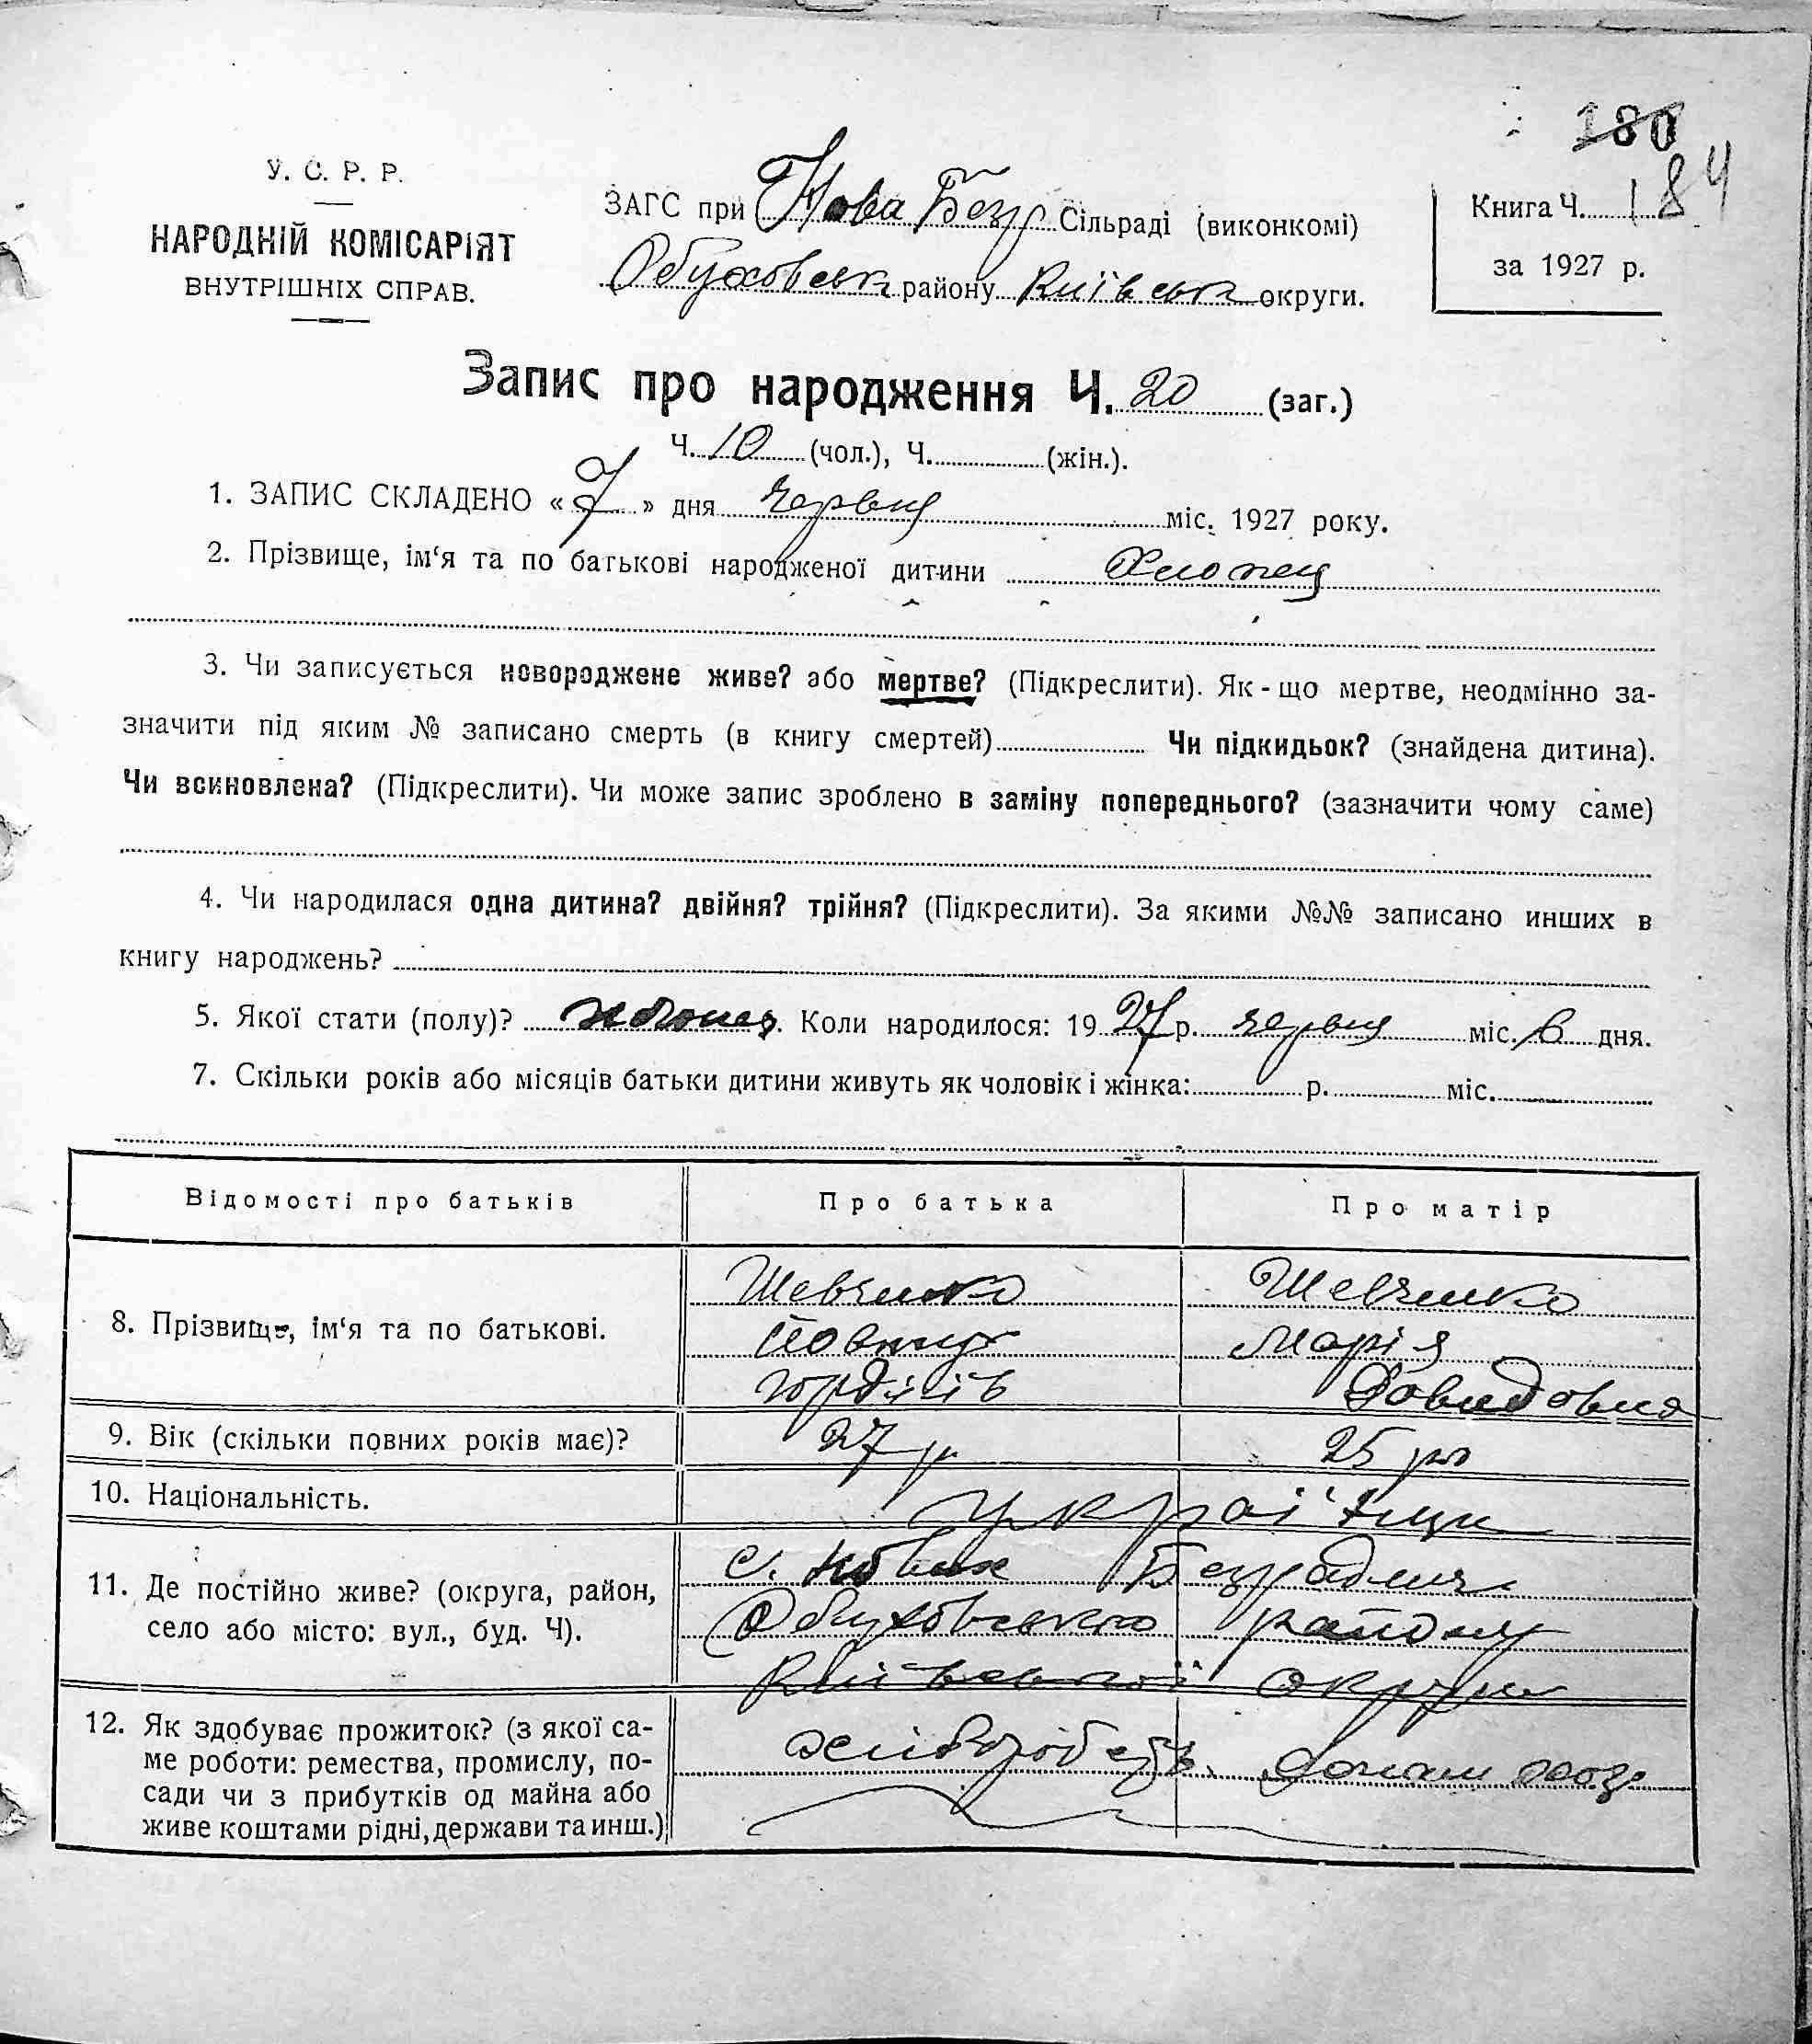 180
184
У. С. Р. Р.
НАРОДНІЙ КОМІСАРІЯТ
ВНУТРІШНІХ СПРАВ.
ЗАГС при Нова Безр Сільраді (виконкомі)
Обуховськ району Київськ округи.
Книга Ч. 1
за 1927 р.
Запис про народження Ч. 20 (заг.)
Ч. 10 (чол.), Ч. (жін.).
1. ЗАПИС СКЛАДЕНО « 7 » дня червня міс. 1927 року.
2. Прізвище, ім‘я та по батькові народженої дитини Хлопец
3. Чи записується новороджене живе? або мертве? (Підкреслити). Як-що мертве, неодмінно за-
значити під яким № записано смерть (в книгу смертей) Чи підкидьок? (знайдена дитина).
Чи всиновлена? (Підкреслити). Чи може запис зроблено в заміну попереднього? (зазначити чому саме)
4. Чи народилася одна дитина? двійня? трійня? (Підкреслити). За якими №№ записано инших в
книгу народжень?
5. Якої стати (полу)? хлопец. Коли народилося: 1927 р. червня міс. 6 дня.
7. Скільки років або місяців батьки дитини живуть як чоловік і жінка: р. міс.
Відомості про батьків Про батька Про матір
8. Прізвище, ім‘я та по батькові.
Шевченко Шевченко
Марія
Гордіїв Довидовна
9. Вік (скільки повних років має)? 27 р 25 ро
10. Національність. Україтци
11. Де постійно живе? (округа, район,
село або місто: вул., буд. Ч).
с. Нових Безрадич
Обуховського району
Київської округи
12. Як здобуває прожиток? (з якої са-
ме роботи: ремества, промислу, по-
сади чи з прибутків од майна або
живе коштами рідні, держави та инш.)
хліборобств. Домаш хозя